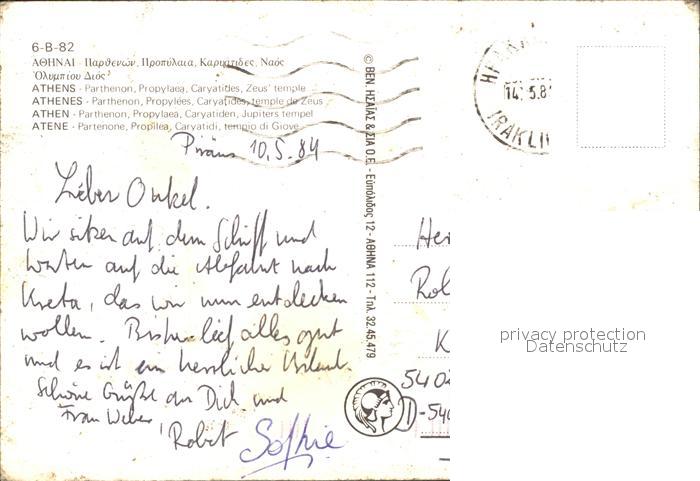 6-B-82
ΑΘΗΝΑΙ - Παρθενών, Προπύλαια, Καρυάτιδες, Ναός
Ὀλυμπίου Διός
ATHENS - Parthenon, Propylaea, Caryatides, Zeus' temple
ATHENES - Parthenon, Propylées, Caryatides, temple de Zeus
ATHEN - Parthenon, Propylaea, Caryatiden, Jupiters tempel
ATENE - Partenone, Propilea, Caryatidi, tempio di Giove
Piräus 10.5.84
Lieber Onkel.
Wir sitzen auf dem Schiff und
warten auf die Abfahrt nach
Kreta, das wir nun entdecken
wollen. Bisher lief alles gut
und es ist ein herrlicher Urlaub.
Schöne Grüße an Dich und
Frau Weber,
Robert Sofie
© ΒΕΝ. ΗΣΑΪΑΣ & ΣΙΑ Ο.Ε. - Ευπόλιδος 12 - ΑΘΗΝΑ 112 - Τηλ. 32.45.479
14. 5.8
IRAKLI
Her
Rob
K
540
D-540
privacy protection
Datenschutz